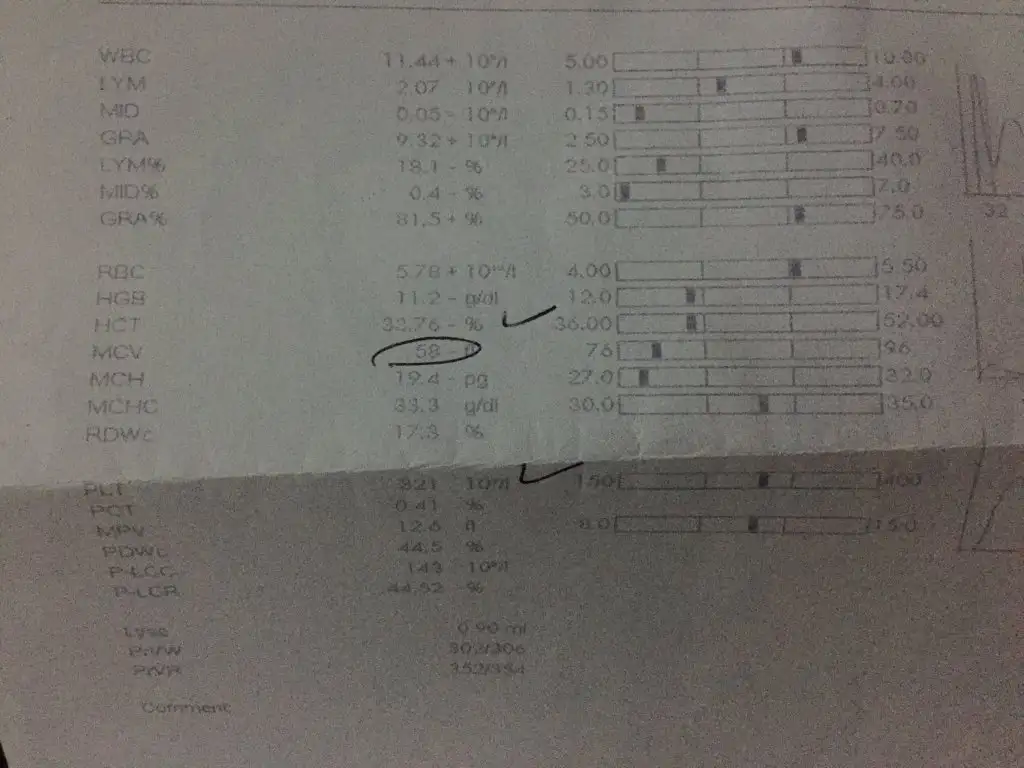 WBC 11.44 + 10⁹/l 5.00 10.00
LYM 2.07 10⁹/l 1.30 4.00
MID 0.05 - 10⁹/l 0.15 0.70
GRA 9.32 + 10⁹/l 2.50 7.50
LYM% 18.1 - % 25.0 40.0
MID% 0.4 - % 3.0 7.0
GRA% 81.5 + % 50.0 75.0
RBC 5.78 + 10¹²/l 4.00 5.50
HGB 11.2 - g/dl 12.0 17.4
HCT 33.76 - % 36.00 52.00
MCV 58 - fl 76 96
MCH 19.4 - pg 27.0 32.0
MCHC 33.3 g/dl 30.0 35.0
RDWc 17.3 %
PLT 321 10⁹/l 150 400
PCT 0.41 %
MPV 12.6 fl 8.0 15.0
PDWc 44.5 %
P-LCC 143 10⁹/l
P-LCR 44.52 %
Lyse 0.90 ml
302/306
352/354
Comment
32